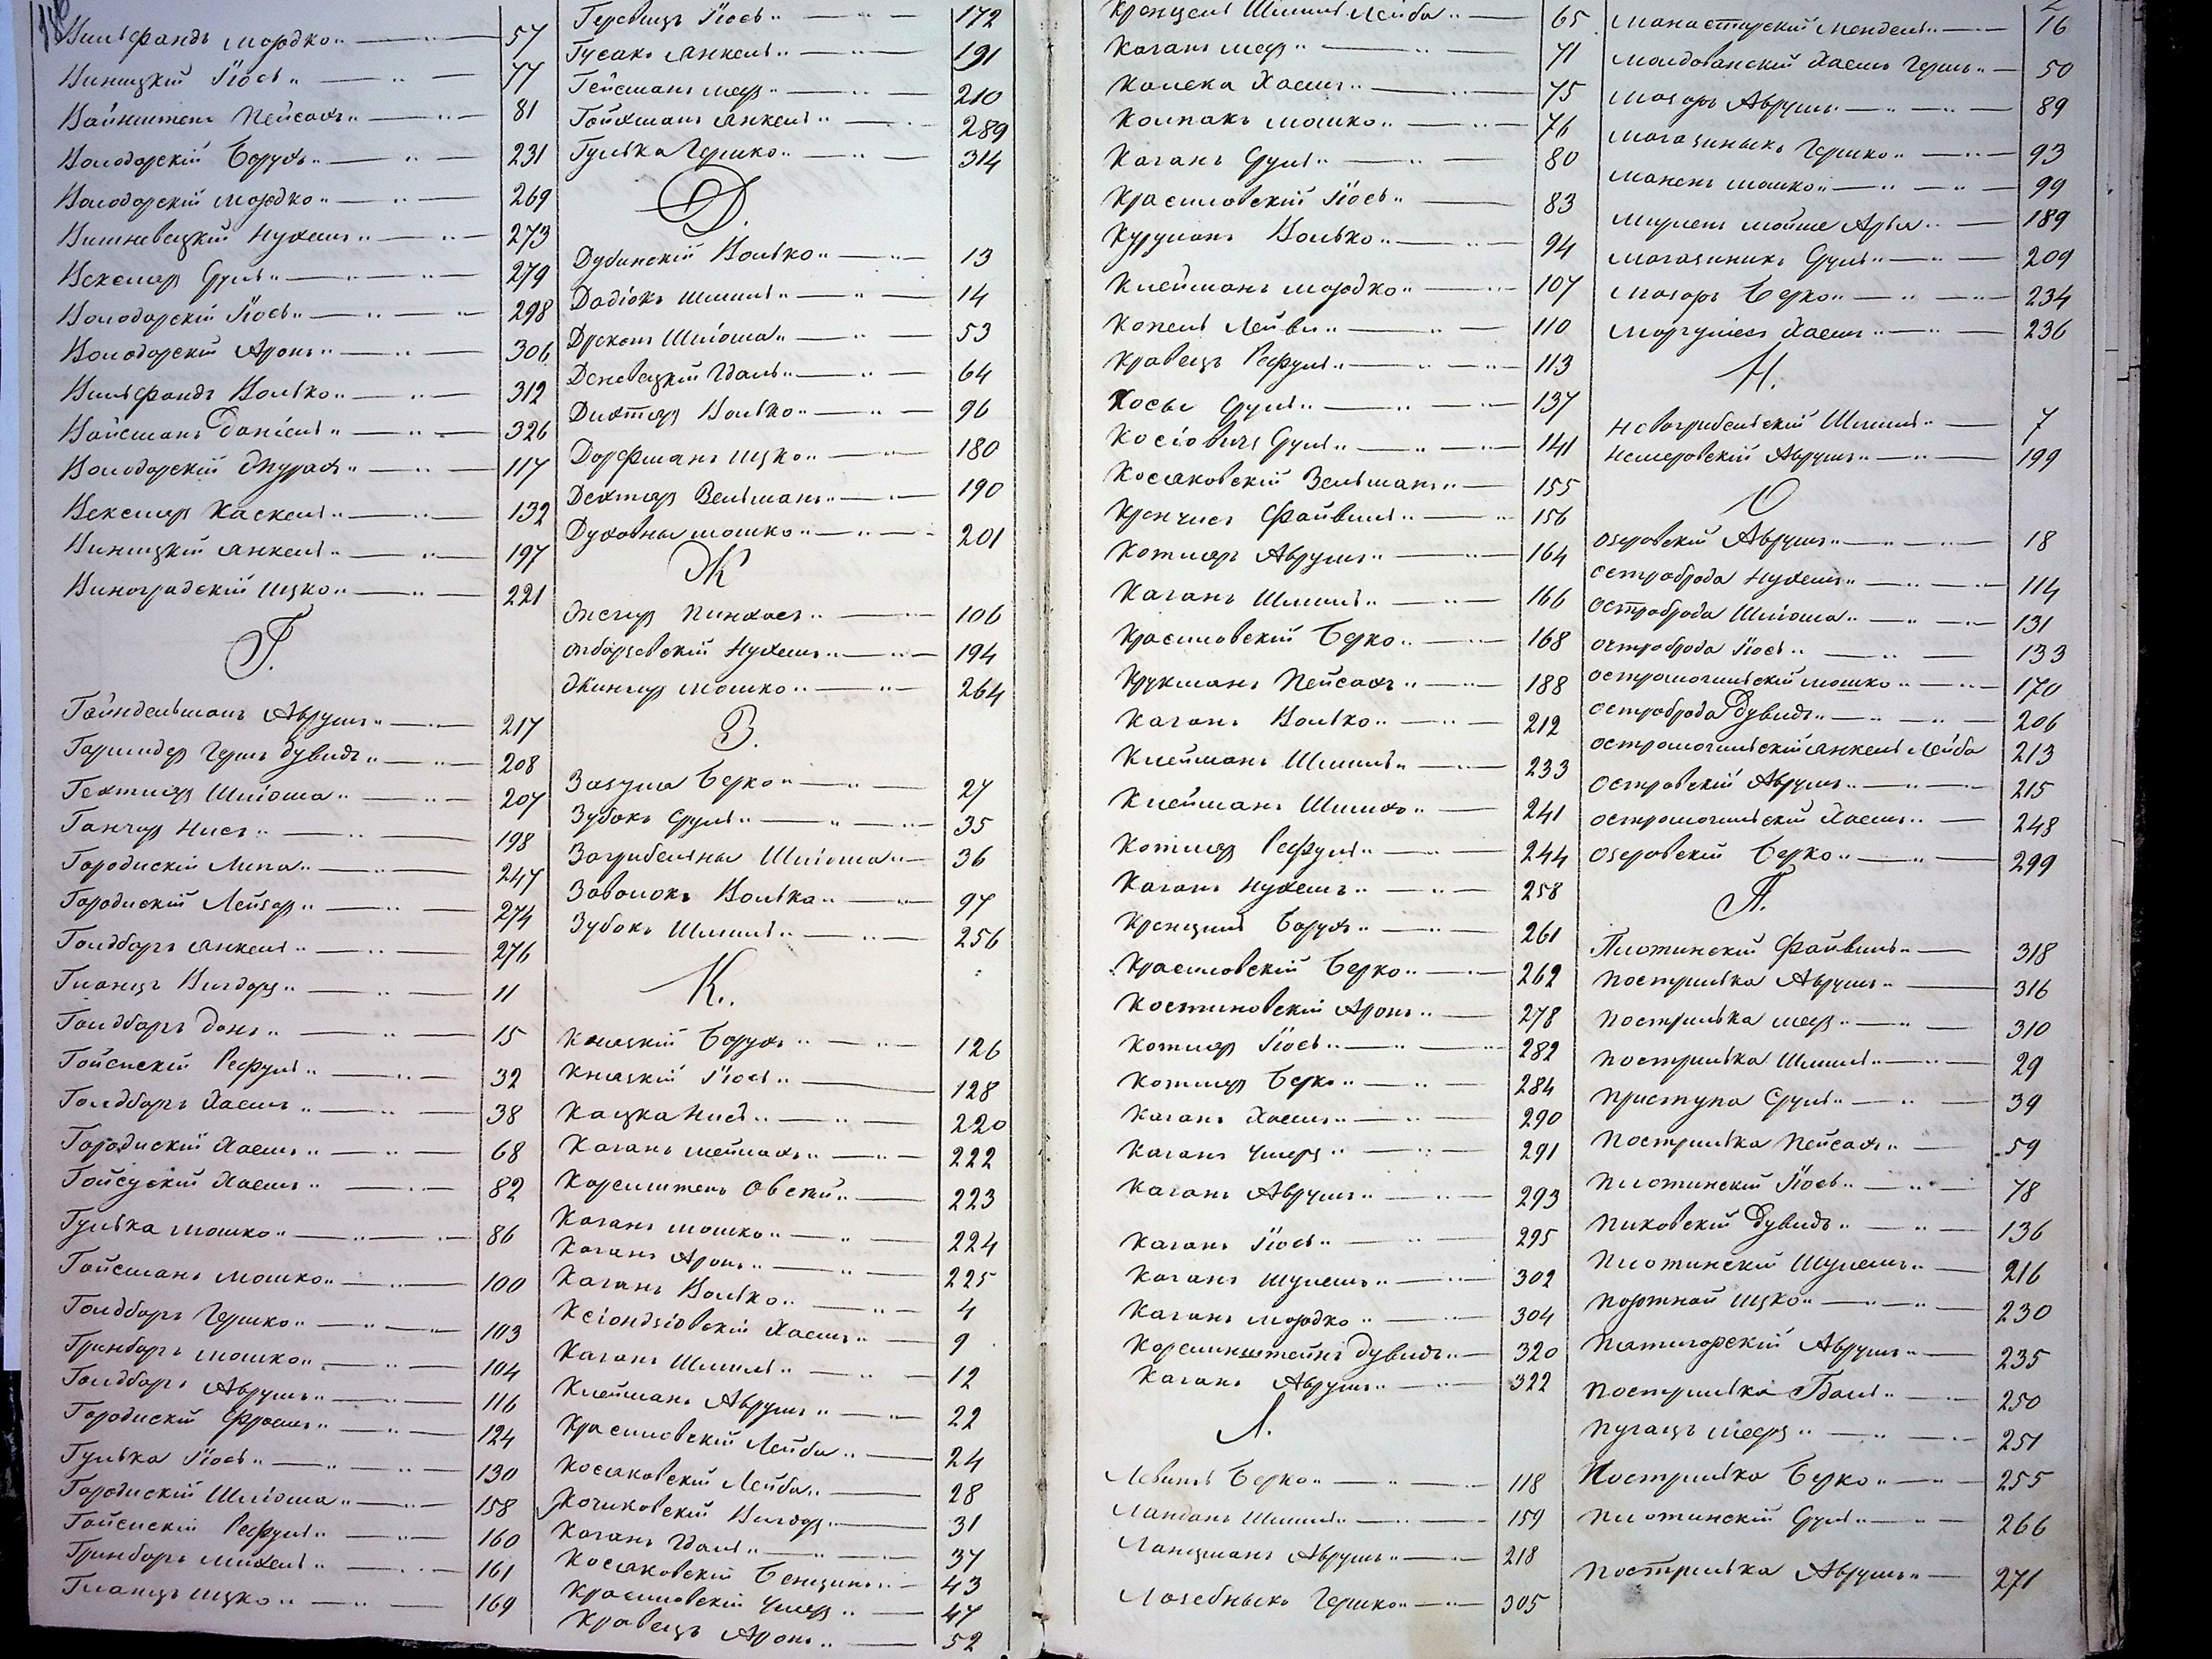 Вильфандъ Мордко 57
Виницкій Іось 77
Вайнштенъ Пейсахъ 81
Володарскій Борухъ 231
Володарскій Мордко 269
Вишневецкій Нухемъ 273
Векслеръ Сруль 279
Володарскій Іось 298
Володарскій Аронъ 306
Вильфандъ Волько 312
Вайсманъ Даніель 326
Володарскій 117
Векслеръ Хаскель 132
Виницкій Янкель 197
Виноградскій Ицко 221
Г.
Гойндельманъ Аврумъ 217
Гершъ Дувидъ 208
Гехтляръ Шліома 207
Ганчаръ Нисъ 198
Городискій Липа 247
Городискій Лейзаръ 274
Голдбаръ Янкель 276
Гланцъ Вигдоръ 11
Голдбаръ Данъ 15
Гойсискій Рефулъ 32
Голдбаръ Хаемъ 38
Городискій Хаемъ 68
Хаемъ 82
Гулька Мошко 86
Гойсманъ Мошко 100
Голдбаръ Гершко 103
Гринбаръ Мошко 104
Голдбаръ Аврумъ 116
Городискій Фроимъ 124
Гулька Іось 130
Городискій Шліома 158
Гойсискій Рефулъ 160
Гринбаръ Михель 161
Гланцъ Ицко 169
Гершъ Іось 172
Гусакъ Янкель 191
Гейсманъ Мееръ 210
Гойхманъ Янкель 289
Гулька Гершко 314
Д.
Дубинскій Волько 13
Дадіокъ Шмиль 14
Шліома 53
Деневецкій Гдаль 64
Дихтяръ Волько 96
Дорфманъ Ицко 180
Дехтяръ Зельманъ 190
Духовны Мошко 201
Ж
Пинхасъ 106
Нухемъ 194
Мошко 264
З.
Зазуля Берко 27
Зубокъ Сруль 35
Загрибельны Шліома 36
Заволокъ Волька 97
Зубокъ Шмиль 256
К.
Княжскій Борухъ 126
Княжскій Іось 128
Кацка Нисъ 220
Каганъ 222
Корсинштенъ Овсѣй 223
Каганъ Мошко 224
Каганъ Аронъ 225
Каганъ Волько 4
Ксіондзіовскій Хаемъ 9
Каганъ Шмиль 12
Клейманъ Аврумъ 22
Красиловскій Лейба 24
Косаковскій Лейба 28
Вигдоръ 31
Каганъ Гдаль 37
Косаковскій Бенционъ 43
Красиловскій Умеръ 47
Кравецъ Аронъ 52
Кренцель Шмиль Лейба 65
Каганъ Меер 71
Калека Хаемъ 75
Колпакъ Мошко 76
Каганъ Сруль 80
Красиловскій Іось 83
Курулянъ Волько 94
Клейманъ Мордко 107
Копель Лейви 110
Кравецъ Рефулъ 113
Косы Сруль 137
Косіовичъ Сруль 141
Косаковскій Зельманъ 155
Файвиль 156
Котляръ Аврумъ 164
Каганъ Шмиль 166
Красиловскій Берко 168
Крукманъ Пейсахъ 188
Каганъ Волько 212
Клейманъ Шмиль 233
Клейманъ Шлиха 241
Котляръ Рефулъ 244
Каганъ Нухемъ 258
Кренцель Борухъ 261
Красиловскій Берко 262
Костиновскій Аронъ 278
Котляръ Іось 282
Котляръ Берко 284
Каганъ Хаемъ 290
Каганъ Умеръ 291
Каганъ Аврумъ 293
Каганъ Іось 295
Каганъ Шулемъ 302
Каганъ Мордко 304
Корсинштейнъ Дувидъ 320
Каганъ Аврумъ 322
Л.
Левитъ Берко 118
Ландонъ Шмиль 159
Ланцманъ Аврумъ 218
Лозебныкъ Гершко 305
Манастирскій Мендель 16
Молдованскій Хаемъ Гершъ 50
Мазоръ Аврумъ 89
Магазиныкъ Гершко 93
Манснъ Мошко 99
Мойше Арья 189
Магазиникъ Сруль 209
Мазоръ Берко 234
Маргулесъ Хаемъ 236
Н.
Новогрибельскій Шмиль 7
Немеровскій Аврумъ 199
О
Озеровскій Аврумъ 18
Остроброда Нухемъ 114
Остроброда Шліома 131
Остроброда Іось 133
Остромогильскій Мошко 170
Остроброда Дувидъ 206
Остромогильскій Янкель Лейба 213
Островскій Аврумъ 215
Остромогильскій Хаемъ 248
Озеровскій Берко 299
П.
Плотинскій Файвиль 318
Пострилька Аврумъ 316
Пострилька Меер 310
Пострилька Шмиль 29
Приступа Сруль 39
Пострилька Пейсахъ 59
Плотинскій Іось 78
Пиковскій Дувидъ 136
Плотинскій Шулемъ 216
Портной Ицко 230
Патигорскій Аврумъ 235
Пострилька Гдаль 250
Пугачъ Меер 251
Пострилька Берко 255
Плотинскій Сруль 266
Пострилька Аврумъ 271